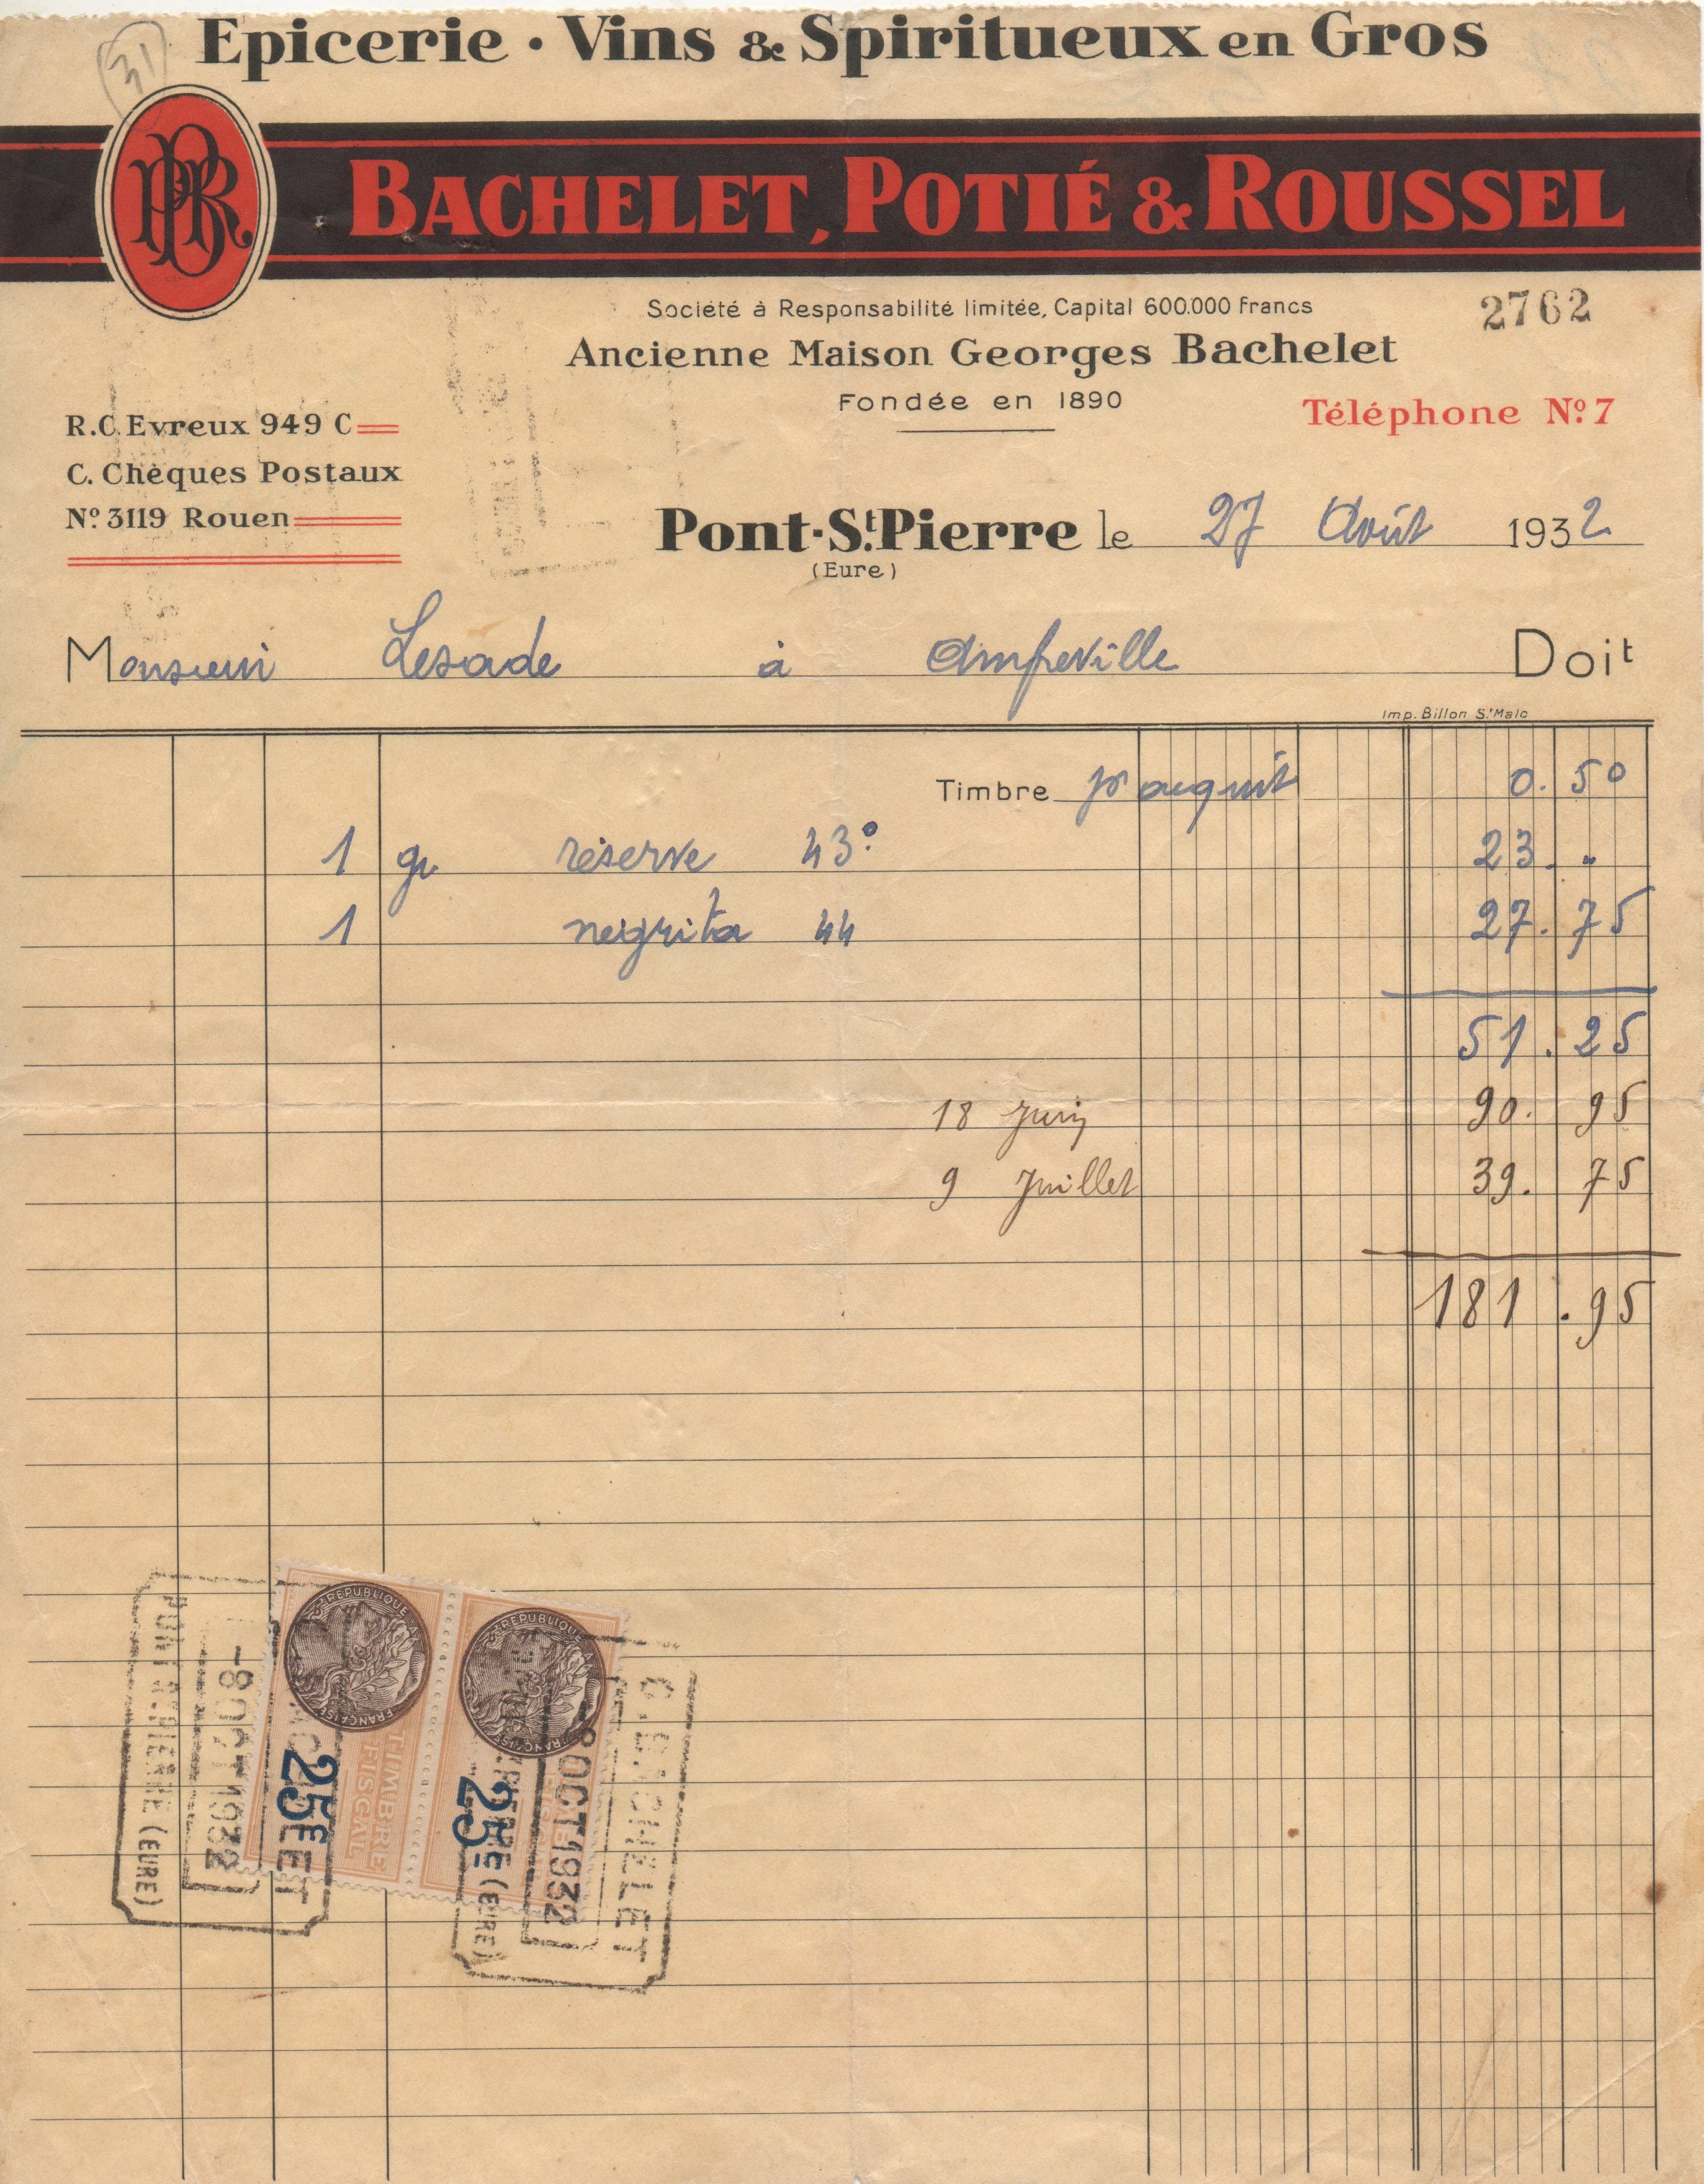 31
Epicerie · Vins & Spiritueux en Gros
BPR
BACHELET, POTIÉ & ROUSSEL
Société à Responsabilité limitée, Capital 600.000 francs
2762
Ancienne Maison Georges Bachelet
Fondée en 1890
Téléphone Nº 7
R.C. Evreux 949 C
C. Chèques Postaux
Nº 3119 Rouen
Pont-St.Pierre le 27 Août 1932
(Eure)
Monsieur Lesade à Amfreville Doit
Imp. Billon St Malo
Timbre pr acquit 0.50
1 gr réserve 43° 23. "
1 negrita 44 27.75
51.25
18 Juin 90.95
9 Juillet 39.75
181.95
REPUBLIQUE FRANÇAISE
TIMBRE FISCAL
25c
REPUBLIQUE FRANÇAISE
25c
-8 OCT 1932
PONT St PIERRE (EURE)
G. BACHELET
-8 OCT 1932
(EURE)